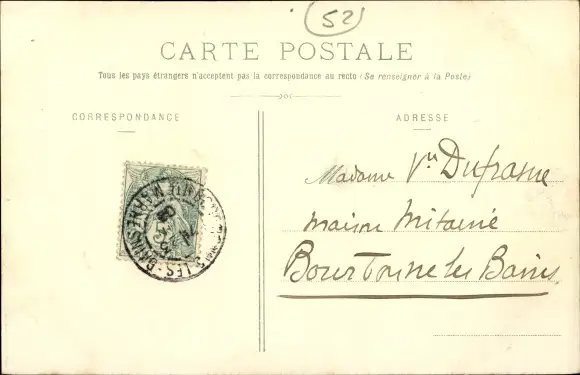 52
CARTE POSTALE
Tous les pays étrangers n'acceptent pas la correspondance au recto (Se renseigner à la Poste)
CORRESPONDANCE
ADRESSE
Madame Vve Dufrasne
maison Mitainé
Bourbonne les Bains
LES-BAINS HTE MARNE